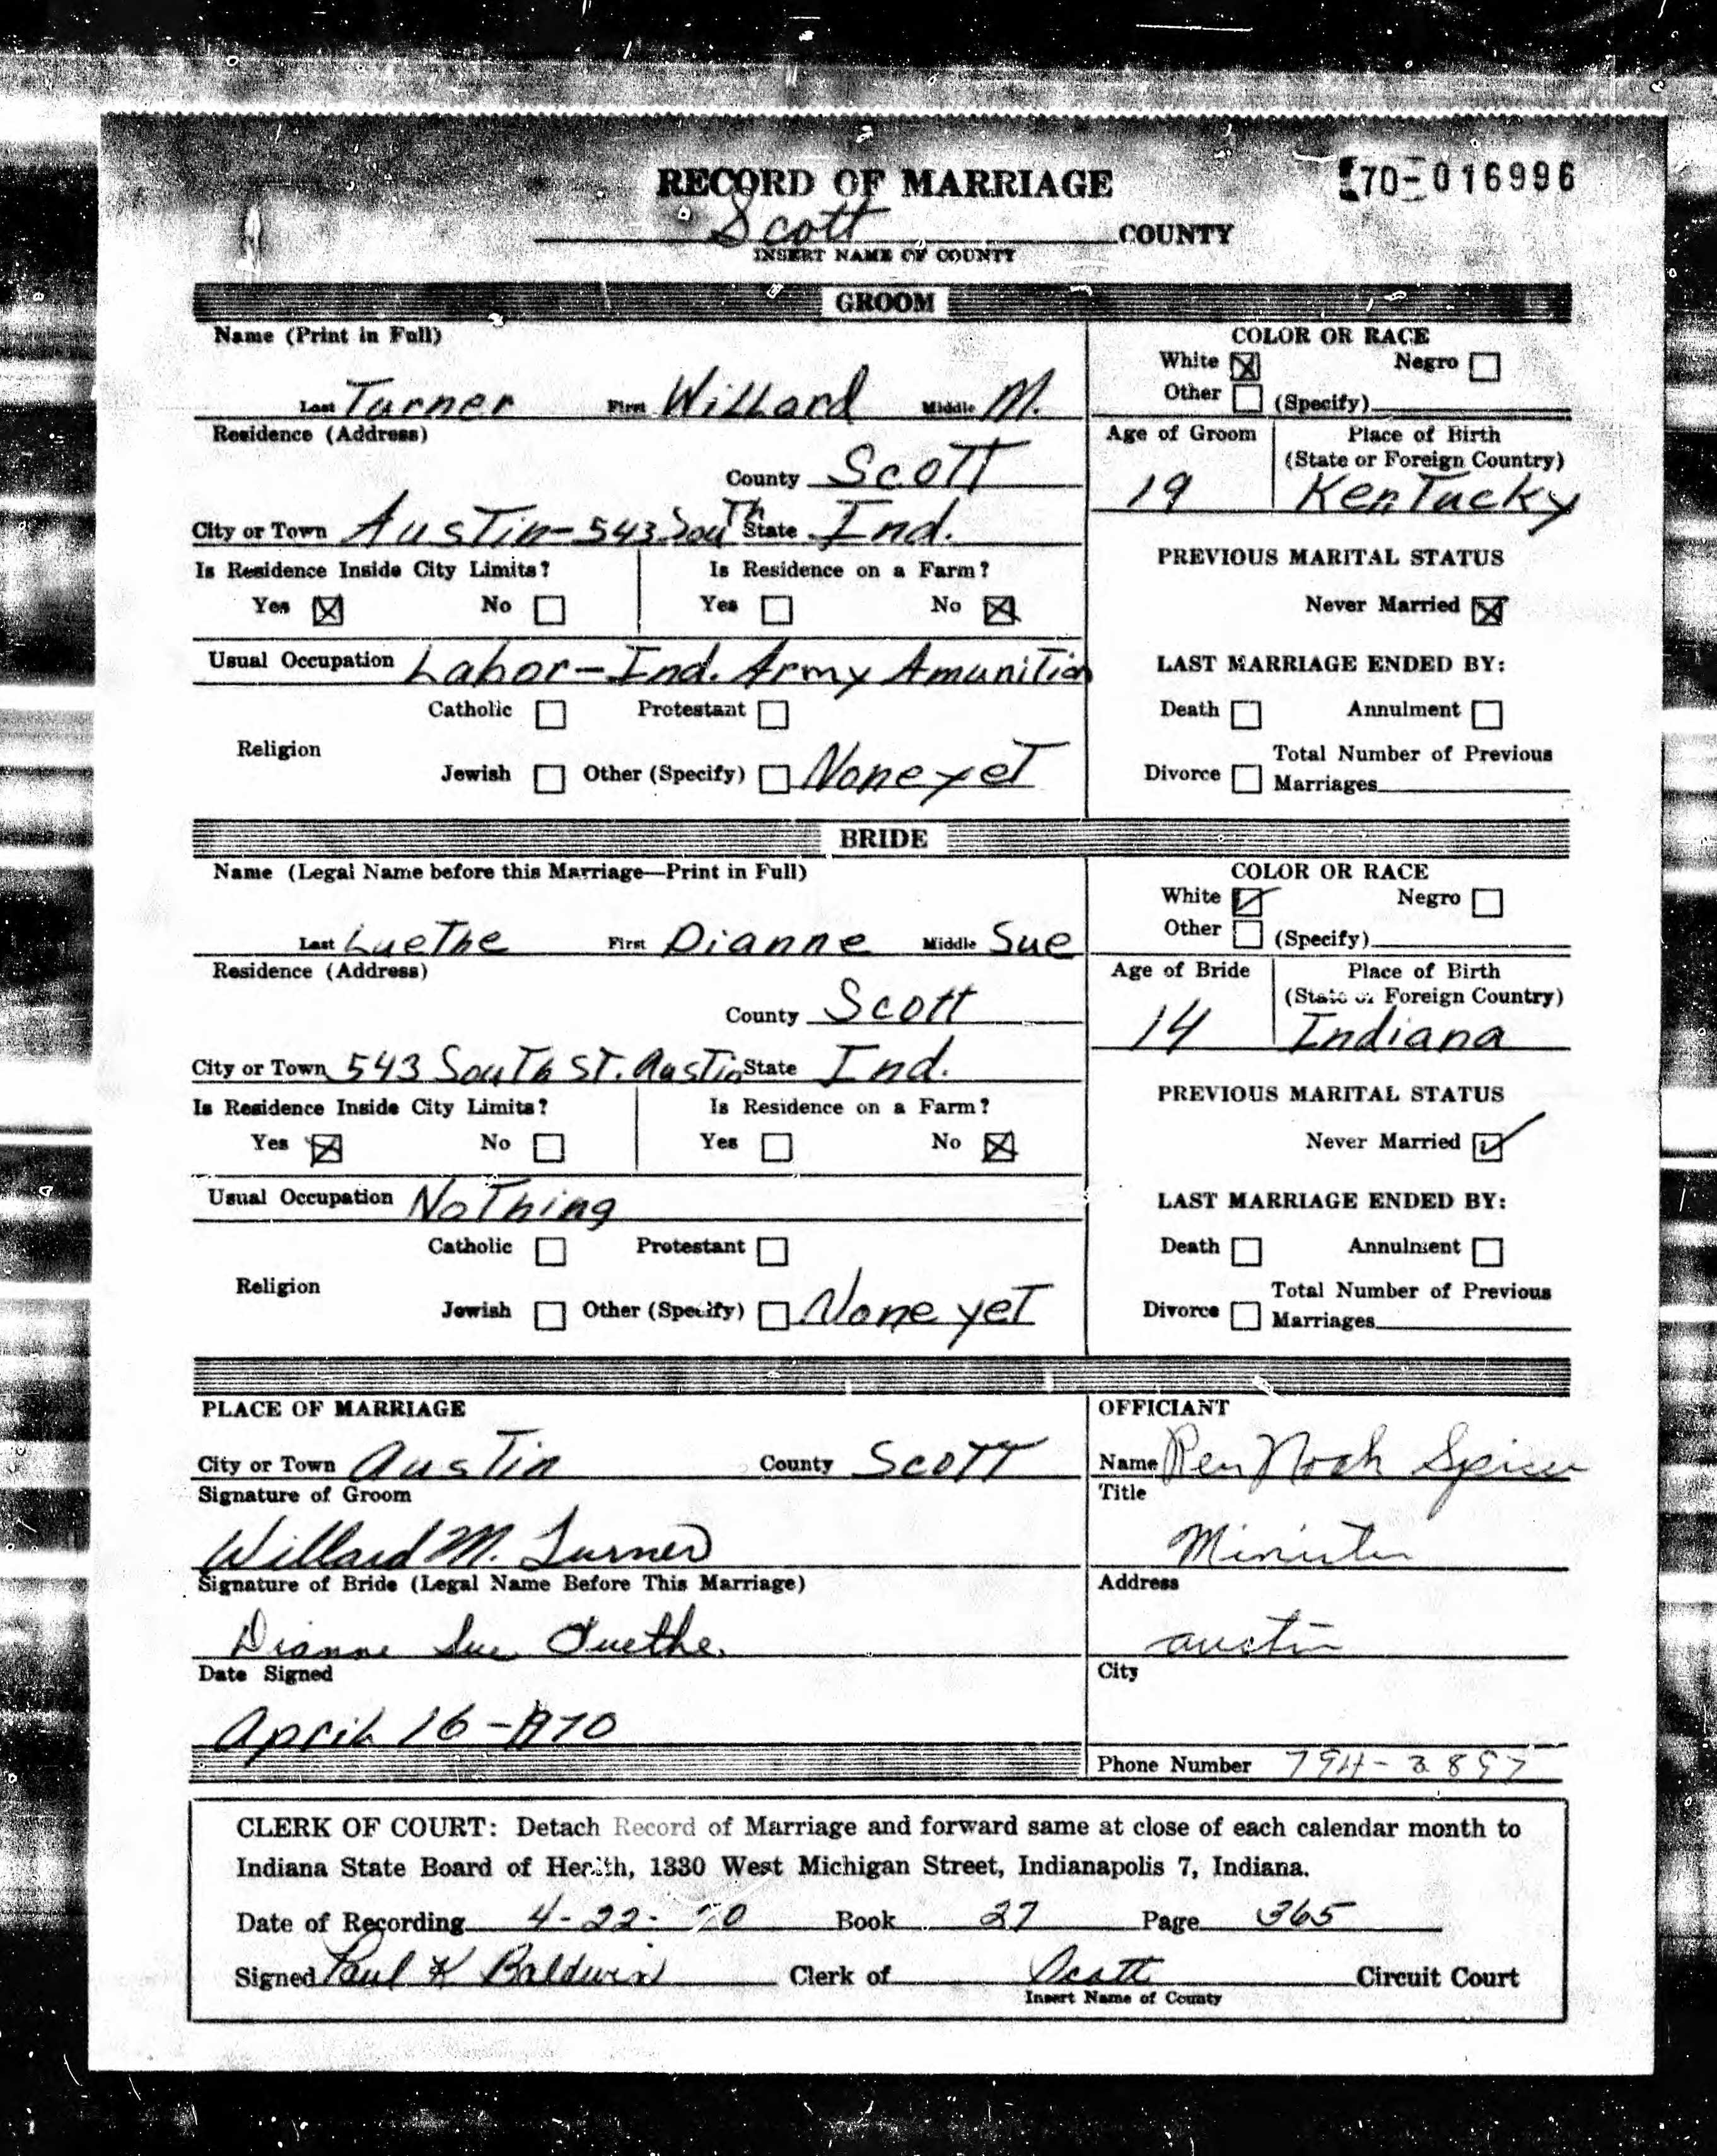 RECORD OF MARRIAGE
70-016996
Scott COUNTY
INSERT NAME OF COUNTY
GROOM
Name (Print in Full)
Last Turner First Willard Middle M.
COLOR OR RACE
White ☒ Negro ☐
Other ☐ (Specify)
Residence (Address)
County Scott
City or Town Austin-543 South State Ind.
Age of Groom
19
Place of Birth
(State or Foreign Country)
Kentucky
Is Residence Inside City Limits?
Yes ☒ No ☐
Is Residence on a Farm?
Yes ☐ No ☒
PREVIOUS MARITAL STATUS
Never Married ☒
Usual Occupation Labor-Ind. Army Amunition
LAST MARRIAGE ENDED BY:
Catholic ☐ Protestant ☐
Religion
Jewish ☐ Other (Specify) ☐ None yet
Death ☐ Annulment ☐
Divorce ☐ Total Number of Previous
Marriages
BRIDE
Name (Legal Name before this Marriage—Print in Full)
Last Luethe First Dianne Middle Sue
COLOR OR RACE
White ☑ Negro ☐
Other ☐ (Specify)
Residence (Address)
County Scott
City or Town 543 South St. Austin State Ind.
Age of Bride
14
Place of Birth
(State or Foreign Country)
Indiana
Is Residence Inside City Limits?
Yes ☒ No ☐
Is Residence on a Farm?
Yes ☐ No ☒
PREVIOUS MARITAL STATUS
Never Married ☑
Usual Occupation Nothing
LAST MARRIAGE ENDED BY:
Catholic ☐ Protestant ☐
Religion
Jewish ☐ Other (Specify) ☐ None yet
Death ☐ Annulment ☐
Divorce ☐ Total Number of Previous
Marriages
PLACE OF MARRIAGE
City or Town Austin County Scott
Signature of Groom
Willard M. Turner
Signature of Bride (Legal Name Before This Marriage)
Dianne Sue Luethe
Date Signed
April 16-1970
OFFICIANT
Name Rev Noah Spicer
Title
Minister
Address
austin
City
Phone Number 794-3897
CLERK OF COURT: Detach Record of Marriage and forward same at close of each calendar month to
Indiana State Board of Health, 1330 West Michigan Street, Indianapolis 7, Indiana.
Date of Recording 4-22-70 Book 27 Page 365
Signed Paul K Baldwin Clerk of Scott Circuit Court
Insert Name of County